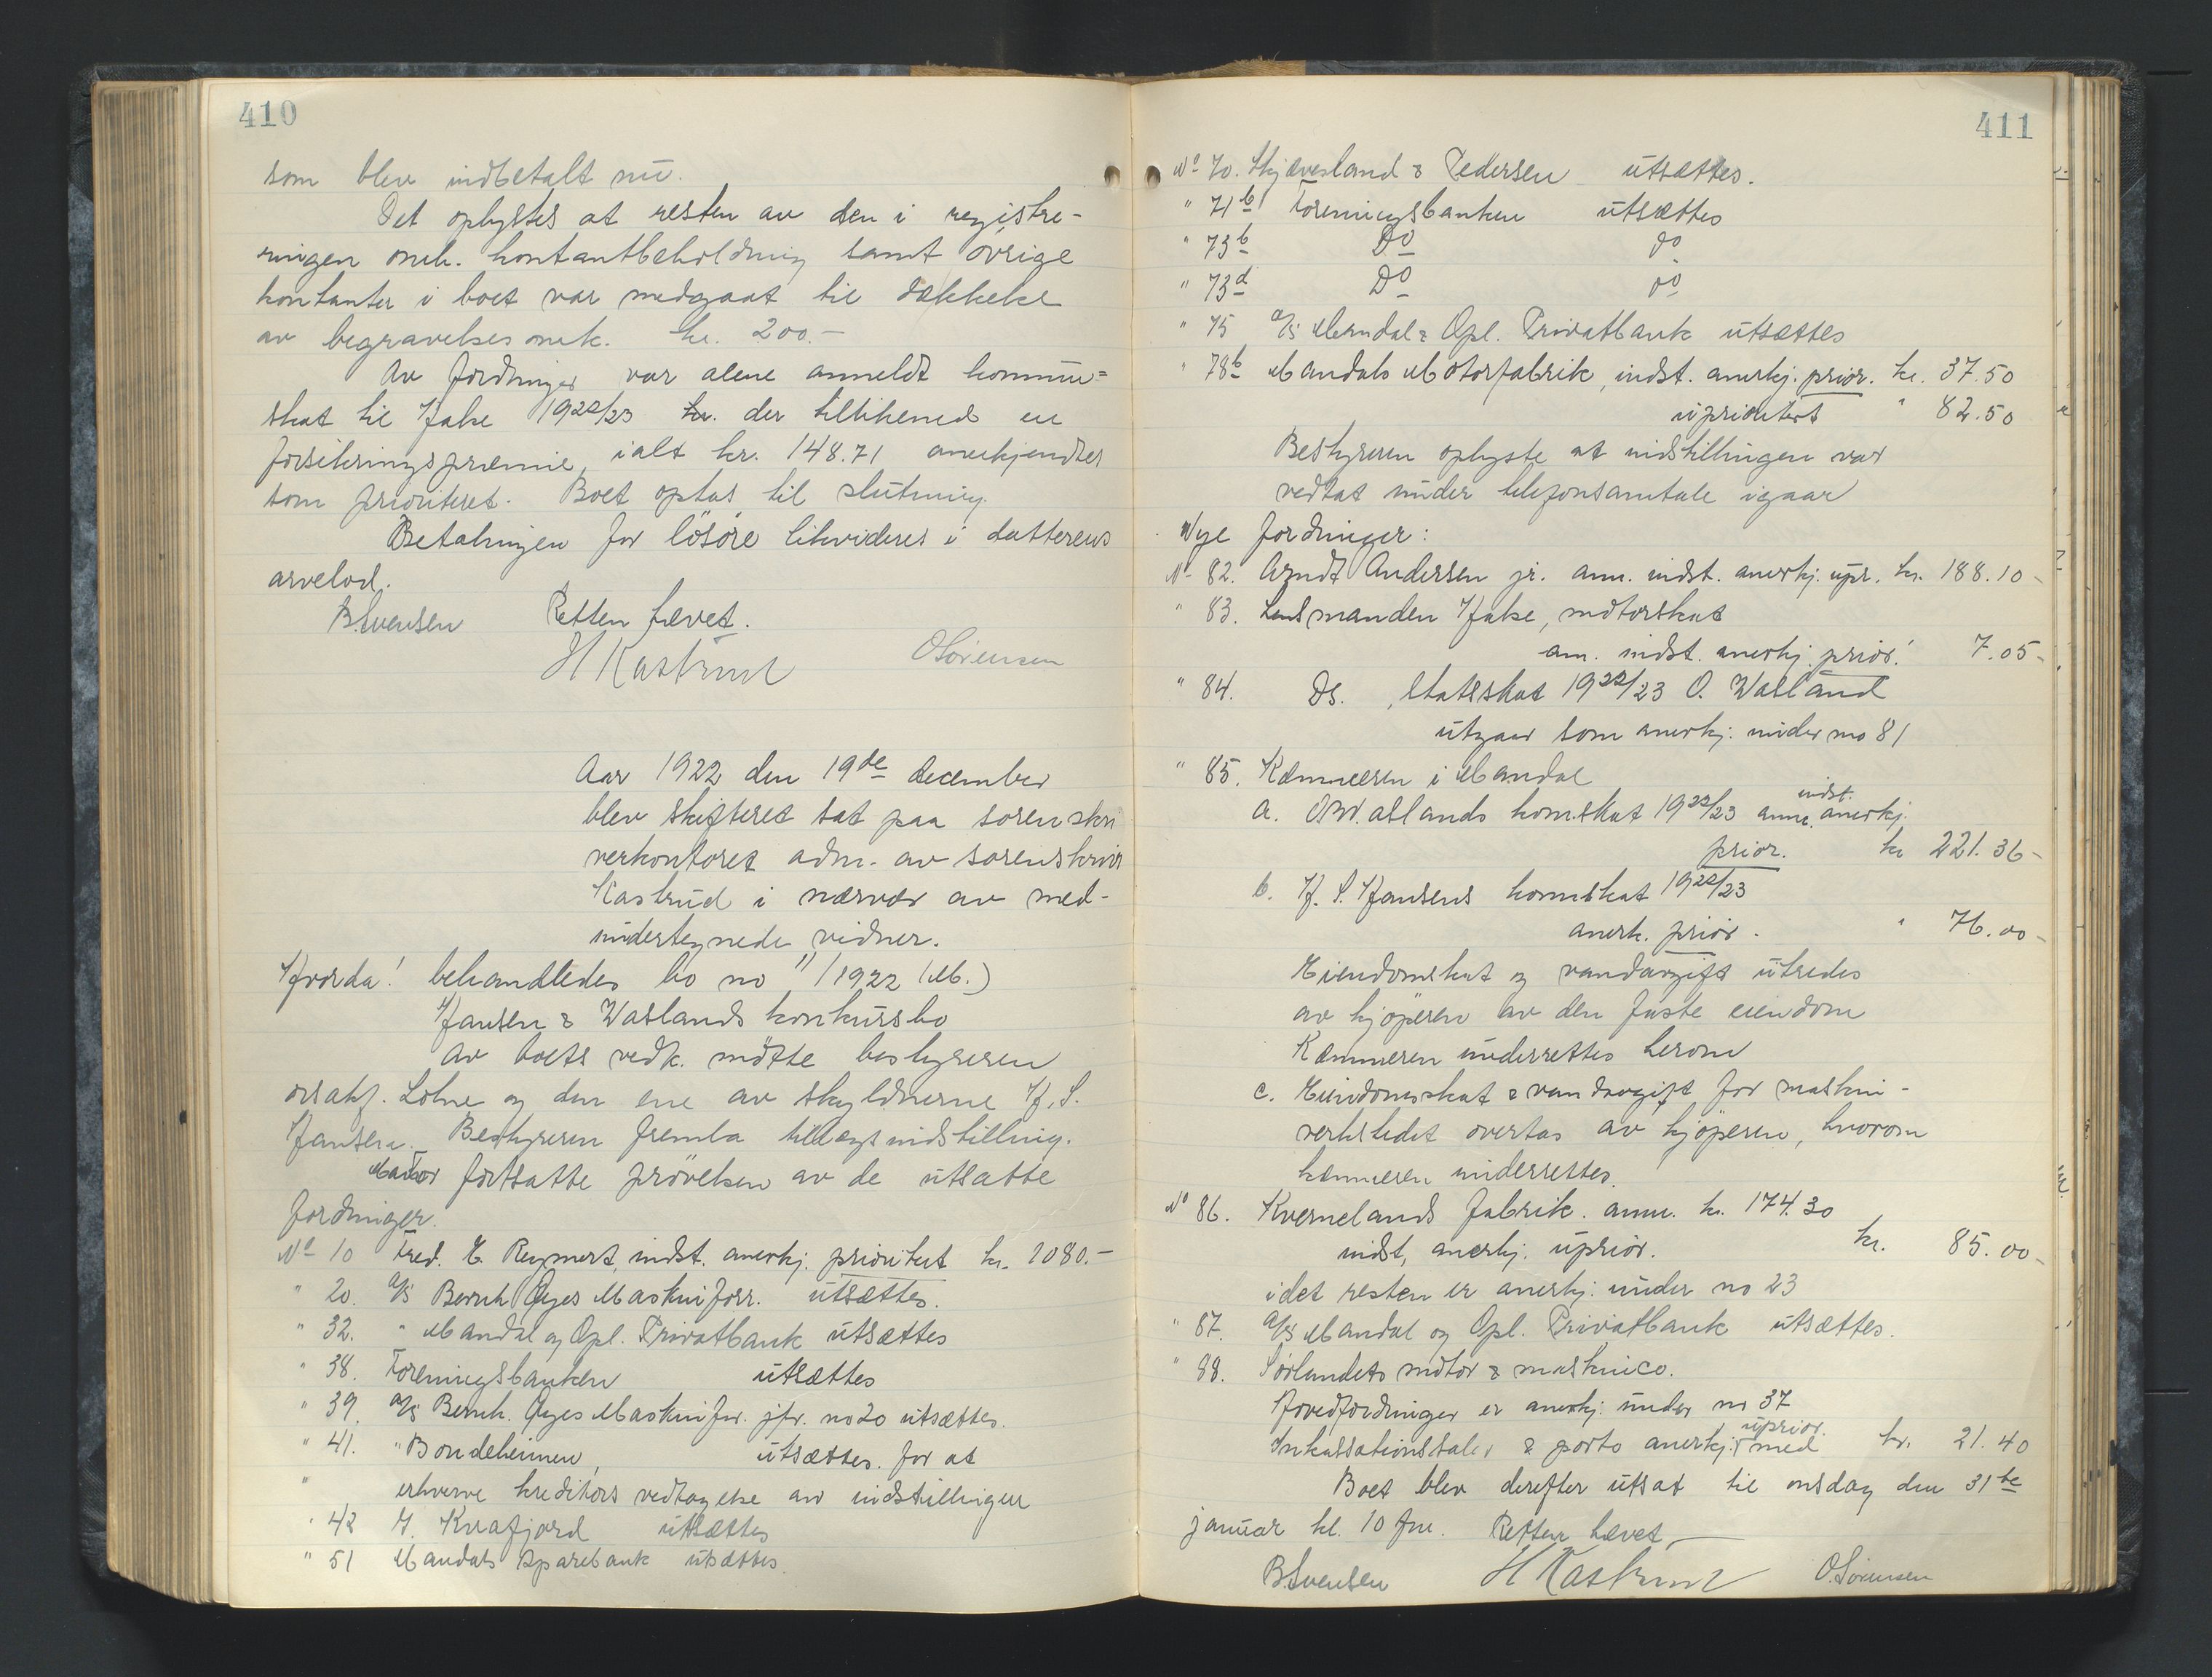 410
som blev indbetalt nu.
Det oplystes at resten av den i registre-
ringen omh. kontantbeholdning samt övrige
kontanter i boet var medgaat til dækkelse
av begravelsesomk. kr. 200.-
Av fordringer var alene anmeldt kommu=
skat til Halse 1922/23 kr. der tillikemed en
forsikringspræmie, ialt kr. 148.71 anerkjendtes
som prioritert. Boet optas til slutning.
Betalingen for lösöre likvideres i datterens
arvelod.
B. Svensen Retten hævet.
H Kastrud O Sörensen
Aar 1922 den 19de december
blev skifteret sat paa sorenskri
verkontoret adm. av sorenskriver
Kastrud i nærvær av med-
undertegnede vidner.
Hvorda! behandledes bo no 11/1922 (M.)
Hansen & Watlands konkursbo
Av boets vedk. mötte bestyreren
orsakf. Lohne og den ene av skyldnerne H. S.
Hansen. Bestyreren fremla tillægsindstilling.
Man fortsatte prövelsen av de utsatte
fordringer.
No 10 Fred. E. Reymert, indst. anerkj. prioritert kr. 1080.-
" 20. A/S Bernh Öyes Maskinforr. utsættes.
" 32. " Mandal og Opl. Privatbank utsættes
" 38. Foreningsbanken utsættes
" 39. A/S Bernh. Öyes Maskinfor. jfr. no 20 utsættes.
" 41. " Bondeheimen, utsættes. for at
" erhverve kreditors vedtagelse av indstillingen
" 42 Kvafjord utsættes
" 51 Mandals Sparebank utsættes.
411
No 70. Skjævesland & Pedersen utsættes.
" 71b Foreningsbanken utsættes
" 73b Do do
" 73d Do do
" 75 A/S Mandal & Opl. Privatbank utsættes
" 78b Mandals Motorfabrik, indst. anerkj. prior. kr. 37.50
uprioritert " 82.50
Bestyreren oplyste at indstillingen var
vedtat under telefonsamtale igaar
Nye fordringer:
No 82. Arndt Andersen jr. anm. indst. anerkj. upr. kr. 188.10-
" 83. Lensmanden Halse, motorskat
anm. indst. anerkj. prior. 7.05-
" 84. Ds. , Statsskat 1922/23 O. Watland
utgaar som anerkj. under no 81
" 85. Kæmneren i Mandal
a. O. Watlands komskat 1922/23 anm. indst. anerkj.
prior. kr 221.36-
b. H. S. Hansens komskat 1922/23
anerk. prior. " 76.00-
Eiendomskat og vandavgift utredes
av kjöperen av den faste eiendom
Kæmneren underrettes herom
c. Eiendomsskat & vandavgift for maskin-
verkstedet overtas av kjöperen, hvorom
kæmneren underrettes.
No 86. Kvernelands fabrik. anm. kr. 174.30
indst. anerkj. uprior. kr. 85.00-
idet resten er anerkj. under no 23
" 87. A/S Mandal og Opl. Privatbank utsættes.
" 88. Sörlandets motor & maskinco.
Hovedfordringer er anerkj. under no 37
Inkassationssalær & porto anerkj. uprior. med kr. 21.40
Boet blev derefter utsat til onsdag den 31te
januar kl. 10 fm. Retten hævet
B. Svensen H Kastrud O. Sörensen